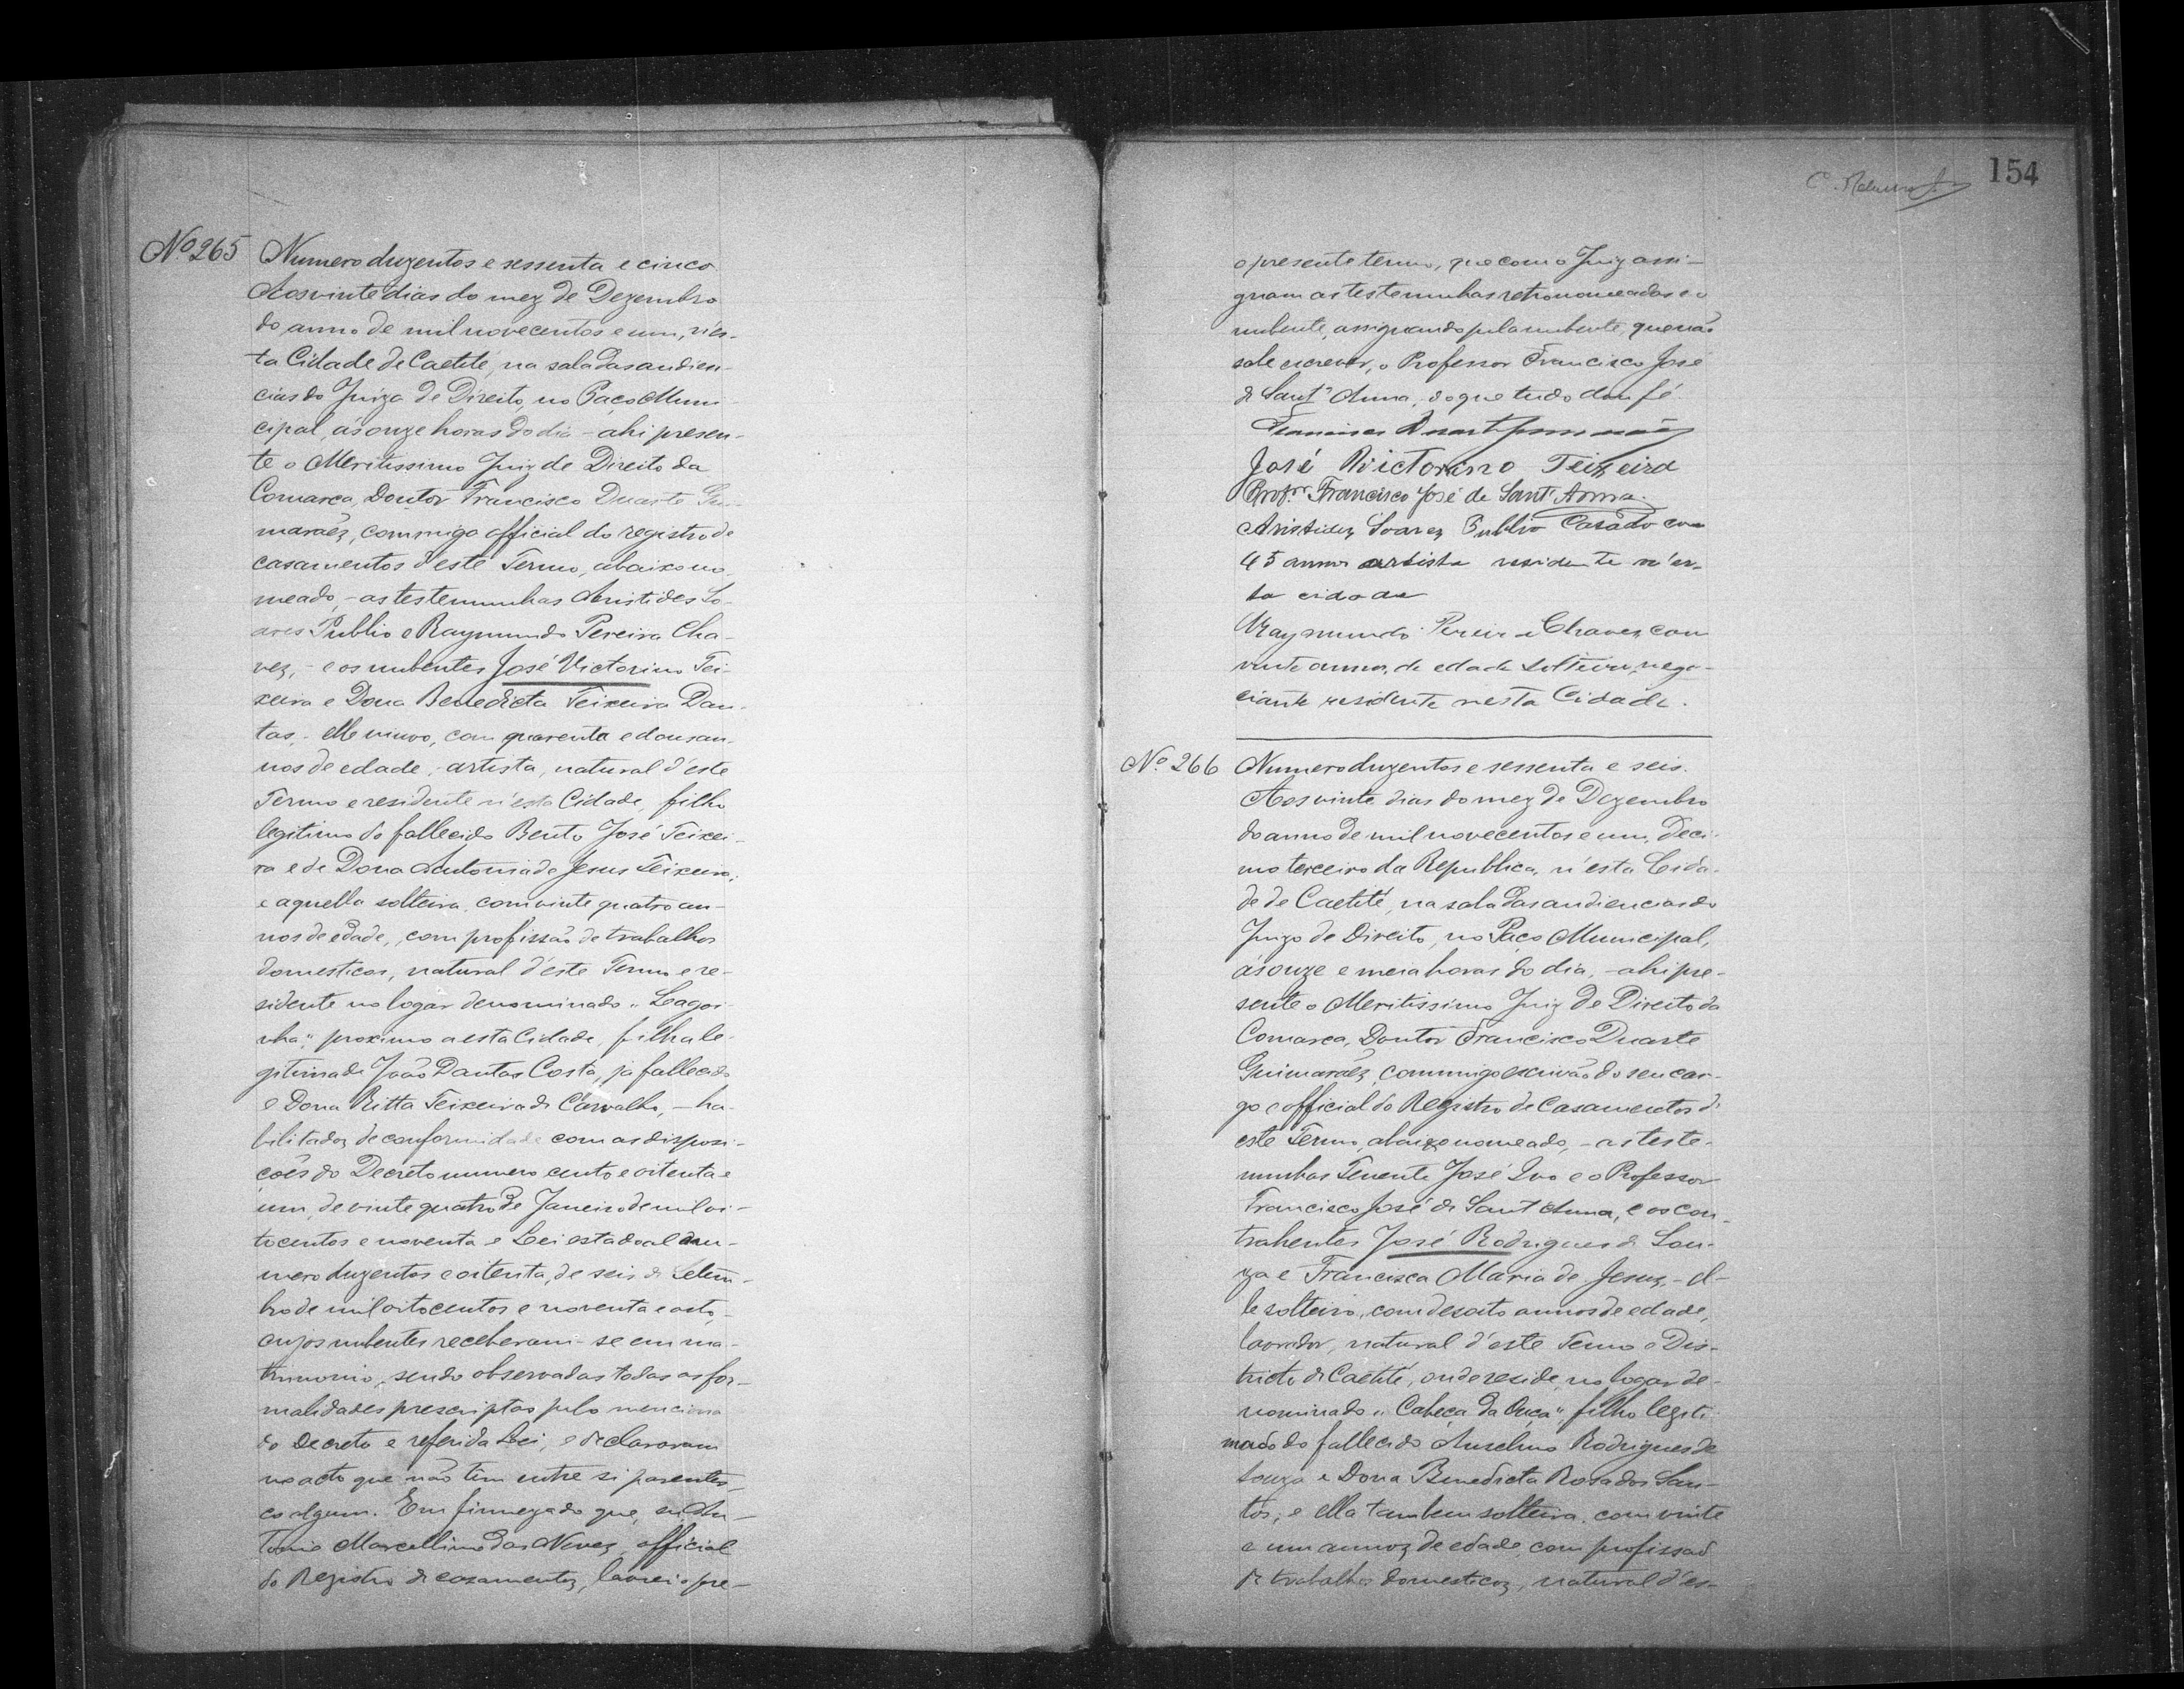 Nº 265 Numero duzentos e sessenta e cinco
Aos vinte dias do mez de Dezembro
do anno de mil novecentos e um, n'es-
ta Cidade de Caetité, na sala das audien-
cias do Juizo de Direito, no Paço Muni-
cipal, ás onze horas do dia - ahi presen-
te o Meritissimo Juiz de Direito da
Comarca, Doutor Francisco Duarte Gui-
marães, commigo official do registro de
casamentos d'este Termo, abaixo no-
meado, - as testemunhas Aristides So-
ares Publio e Raymundo Pereira Cha-
vez, - e os nubentes José Victorino Tei-
xeira e Dona Benedicta Teixeira Dan-
tas, - elle viuvo, com quarenta e dous an-
nos de edade, - artista, natural d'este
Termo e residente n'esta Cidade, filho
legitimo do fallecido Bento José Teixei-
ra e de Dona Antonia de Jesus Teixeira;
e aquella solteira, com vinte quatro an-
nos de edade, com profissão de trabalhos
domesticos, natural d'este Termo e re-
sidente no logar denominado "Lagoi-
nha", proximo a esta Cidade, filha le-
gitima de João Dantas Costa, já fallecido
e Dona Ritta Teixeira de Carvalho, - ha-
bilitados de conformidade com as disposi-
ções do Decreto numero cento e oitenta e
um, de vinte quatro de Janeiro de mil oi-
tocentos e noventa e Lei estadoal nu-
mero duzentos e oitenta, de seis de Setem-
bro de mil oitocentos e noventa e oito, -
cujos nubentes receberam-se em ma-
trimonio, sendo observadas todas as for-
malidades prescriptas pelo menciona-
do Decreto e referida Lei, e declararam
no acto que não têm entre si parentes-
co algum. Em firmeza do que, eu An-
tonio Marcellino das Neves, official
do Registro de casamentos, lavrei o pre-
154
o presente termo, que com o Juiz assi-
gnam as testemunhas retronomeadas e o
nubente, assignando pela nubente, que não
sabe escrever, o Professor Francisco José
de Sant'Anna, do que tudo dou fé.
Francisco Duarte Guimarães
José Victorino Teixeira
Prof.or Francisco José de Sant'Anna.
Aristides Soares Publio Casado com
45 annos artista residente n'es-
ta cidade
Raymundo Pereira Chaves, com
vinte annos, de edade solteiro, nego-
ciante residente nesta Cidade.
Nº 266 Numero duzentos e sessenta e seis.
Aos vinte dias do mez de Dezembro
do anno de mil novecentos e um, deci-
mo terceiro da Republica, n'esta Cida-
de de Caetité, na sala das audiencias do
Juizo de Direito, no Paço Municipal,
ás onze e meia horas do dia, - ahi pre-
sente o Meritissimo Juiz de Direito da
Comarca, Doutor Francisco Duarte
Guimarães, commigo escrivão do seu car-
go e official do Registro de Casamentos d'
este Termo, abaixo nomeado, - as teste-
munhas Tenente José Ivo e o Professor
Francisco José de Sant'Anna, e os con-
trahentes José Rodrigues de Sou-
za e Francisca Maria de Jesus, - el-
le solteiro, com desoito annos de edade,
lavrador, natural d'este Termo e Dis-
tricto de Caetité, onde reside, no logar de-
nominado "Cabeça da Onça", filho legiti-
mado do fallecido Anselmo Rodrigues de
Souza e Dona Benedicta Rosa dos San-
tos; e ella tambem solteira, com vinte
e um annos de edade, com profissão
de trabalhos domesticos, natural d'es-